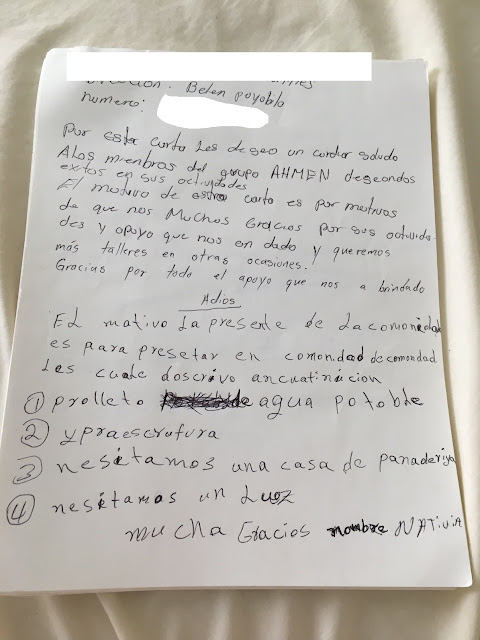 Dirección: Belen poyoblo
numero:
Por este carta les deseo un cordar saludo
Alos mienbros del grupo AHMEN deseondos
exitos en sus actividades
El motivo de esta carta es por motivos
de que nos Muchos Gracios por sus activida
des y apoyo que nos an dado y queremos
más talleres en otras ocasiones.
Gracias por todo el apoyo que nos a brindado
Adios
EL motivo La presente de Lacomonidad
es para presetar en comondad decomondad
Les cuale doscrivo ancuatinacion
① prolleto de agua potoble
② ypraescrufura
③ nesitamos una casa de panaderiya
④ nesitamos un Luoz
mucha Gracios nombre NATIVIA